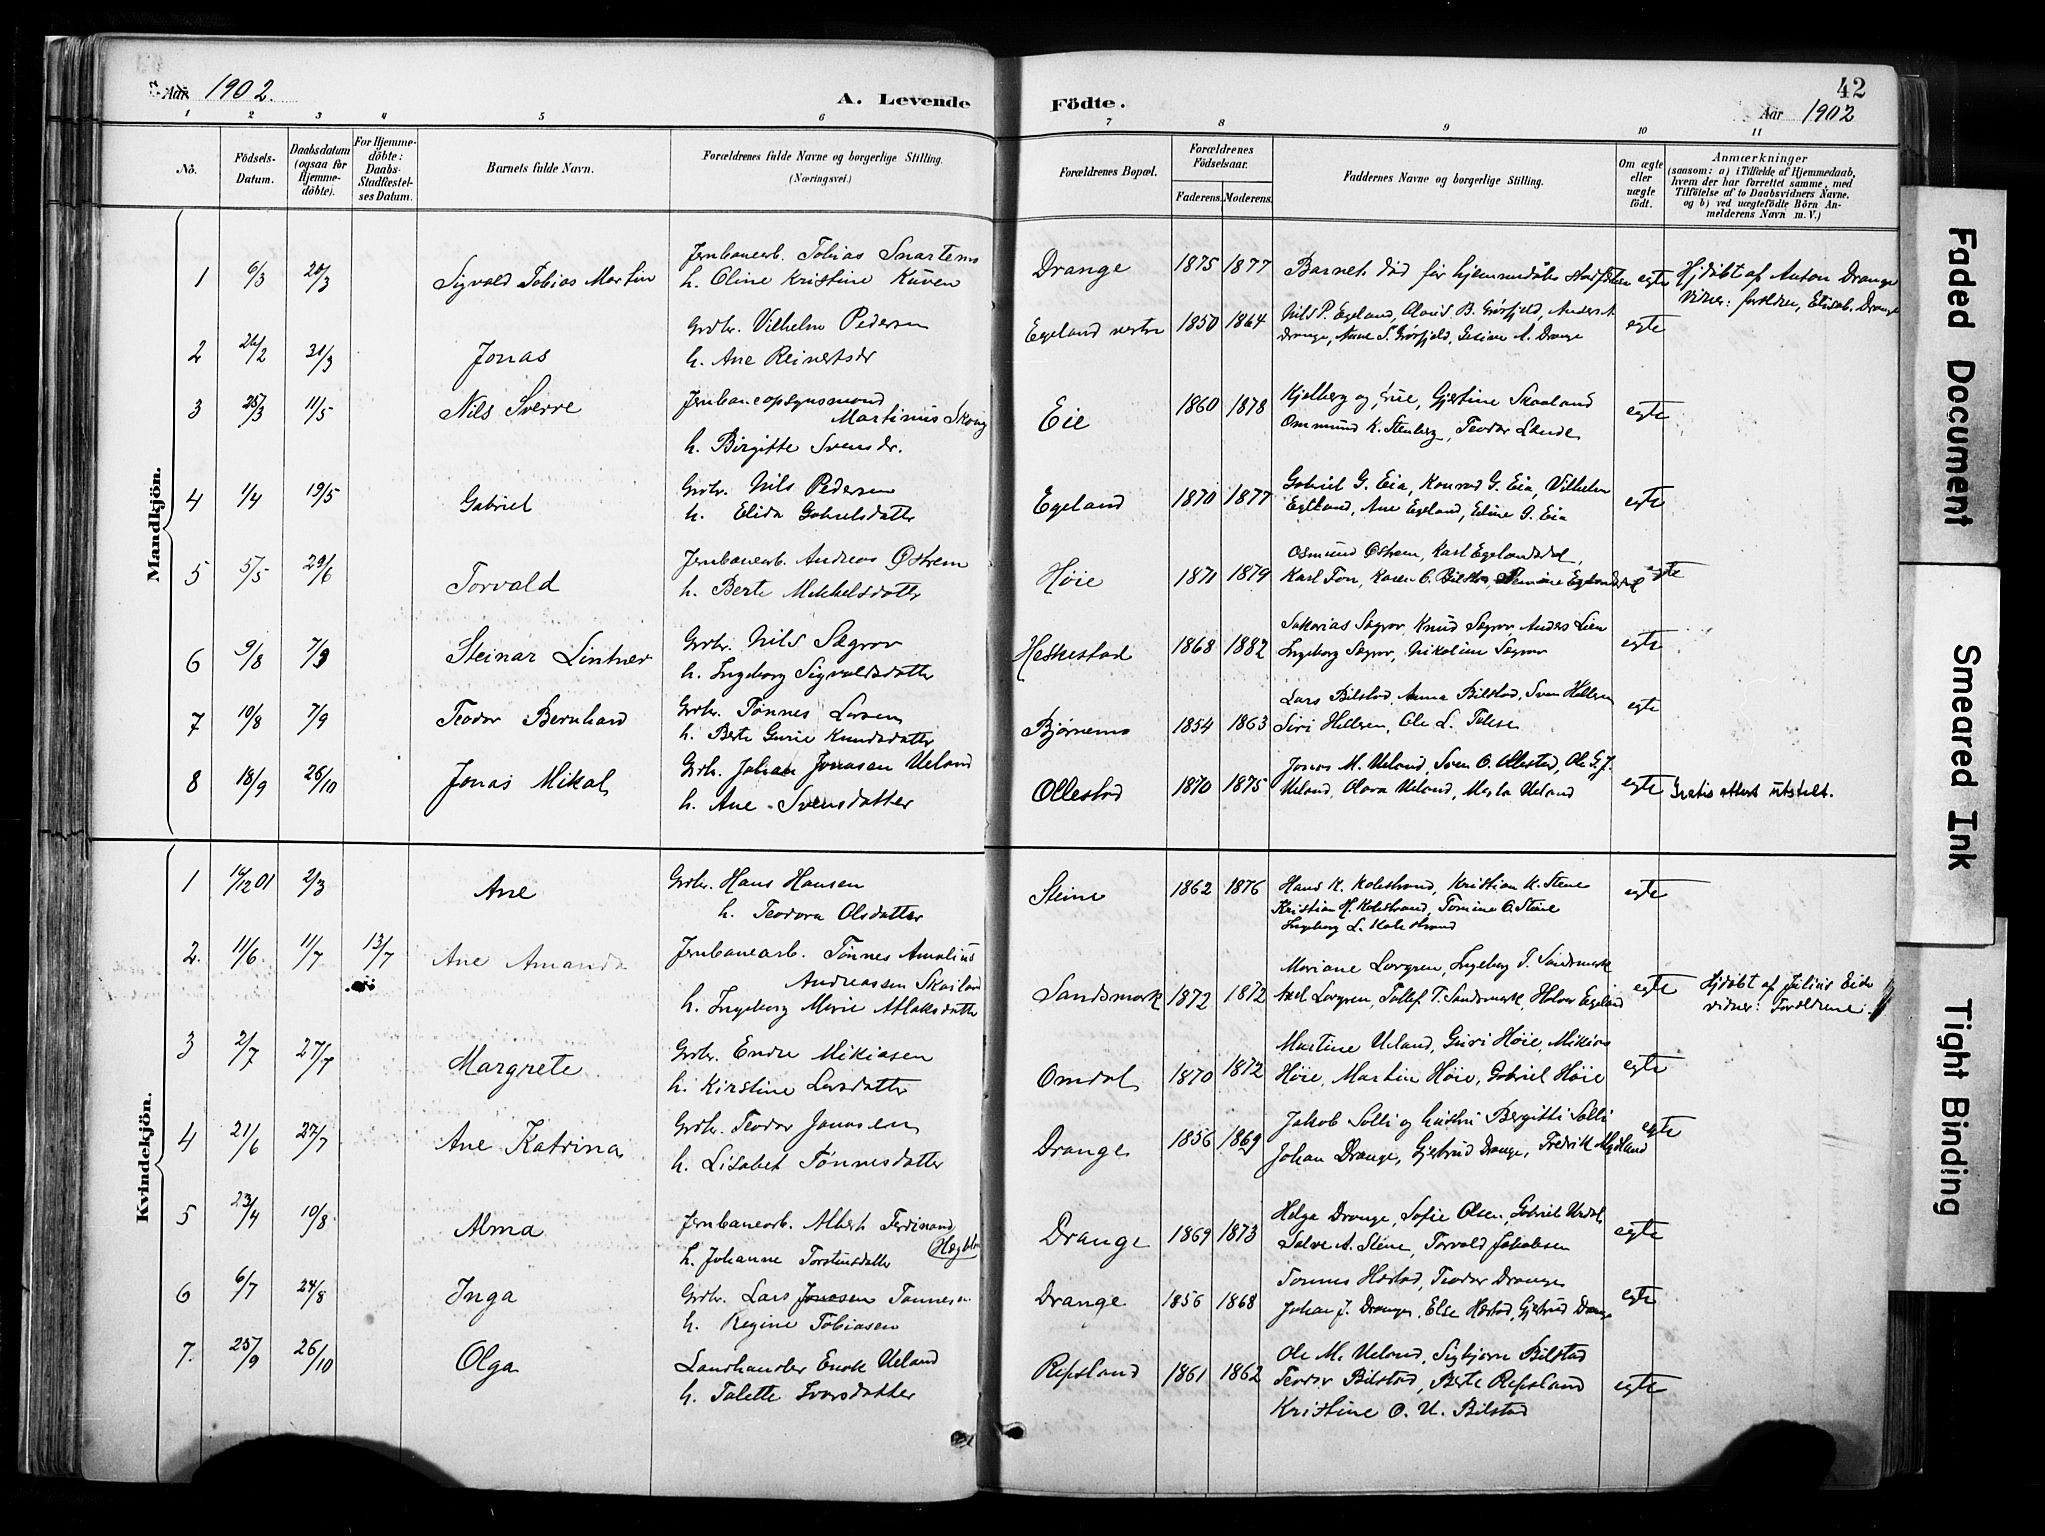 Aar 1902.
A. Levende
Födte.
42
Aar 1902
1 2 3 4 5 6 7 8 9 10 11
No.
Födsels-
Datum.
Daabsdatum
(ogsaa for
Hjemme-
döbte).
For Hjemme-
döbte:
Daabs-
Stadfæstel-
ses Datum.
Barnets fulde Navn.
Forældrenes fulde Navne og borgerlige Stilling.
(Næringsvei.)
Forældrenes Bopæl.
Forældrenes
Födselsaar.
Faderens. Moderens.
Faddernes Navne og borgerlige Stilling.
Om ægte
eller
uægte
födt.
Anmærkninger
(saasom: a) i Tilfælde af Hjemmedaab,
hvem der har forrettet samme, med
Tilföielse af to Daabsvidners Navne.
og b) ved uægtefödte Börn An-
melderens Navn m. V.)
Mandkjön.
Jernbanearb. Tobias Snartemo
1 6/3 20/3 Sigvald Tobias Martin h. Oline Kristine Kuven
Drange 1875 1877 Barnet död før hjemmedåbs stadfestelsen egte Hjdøbt af Anton Drange
Vidner: foreldre, Elisab. Drange
Grdbr. Vilhelm Pedersen
2 26/2 31/3 Jonas h. Ane Reinertsdr
Egeland vestre 1850 1864 Nils P. Egeland, Alovis B. Grøsfjeld, Anders A
Drange, Anne S. Grøsfjeld, Gesine A. Drange egte
3 25/3 11/5 Nils Sverre Jernbaneopsynsmand
Martinius Skoug
h. Birgitte Svensdr.
Eie 1860 1878 Kjelberg og frue, Gjertine Skaaland
Ommund K. Stenberg, Teodor Lande egte
4 1/4 19/5 Gabriel Grdbr. Nils Pedersen
h. Elida Gabrielsdatter
Egeland 1870 1877 Gabriel G. Eia, Konrad G. Eia, Vilhelm
Egeland, Ane Egeland, Eline G. Eia egte
5 5/5 29/6 Torvald Jernbanearb. Andreas Østrem
h. Berte Mikkelsdatter
Høie 1871 1879 Osmund Østrem, Karl Egelandsdal,
Karl Fon, Karen O. Bilstad, Egelandsdal egte
6 9/8 7/9 Steinar Lintner Grdbr. Nils Sægrov
h. Ingeborg Sigvaldsdatter
Heskestad 1868 1882 Sakarias Sægrov, Knud Sægrov, Anders Lien
Ingeborg Sægrov, Nikoline Sægrov egte
7 10/8 7/9 Teodor Bernhard Grdbr. Tønnes Larsen
h. Berte Gurie Knudsdatter
Bjørnemo 1854 1863 Lars Bilstad, Anna Bilstad, Sven Hellesen
Siri Hellesen, Ole L. Tolese egte
8 18/9 26/10 Jonas Mikal Grdbr. Johan Jonasen Ueland
h. Ane Svensdatter
Ollestad 1870 1875 Jonas M. Ueland, Sven O. Ollestad, Ole G. J.
Ueland, Olava Ueland, Marta Ueland egte Gratis attest utstelt.
Kvindekjön.
1 16/12 01 2/3 Ane Grdbr. Hans Hansen
h. Teodora Olsdatter
Steine 1862 1876 Hans K. Kolestrand, Kristian K. Stene
Kristian H. Kolestrand, Tomine O. Stene
Ingeborg L. Kolestrand egte
2. 11/6. 11/7 13/7 Ane Amanda Jernbanearb. Tønnes Amalius
Andreassen Skailand
h. Ingeborg Marie Atlaksdatter
Sandsmark 1872 1872 Mariane Lovgren, Ingeborg T. Sandsmark
Axel Lovgren, Tollef T. Sandsmark, Halvor Egeland egte Hjdøbt af Julius Eide
vidner: Foreldrene.
3 2/7 27/7 Margrete Grdbr. Endre Mikiasen
h. Kirstine Larsdatter
Omdal 1870 1872 Martine Ueland, Guri Høie, Mikias
Høie, Martin Høie, Gabriel Høie egte
4 21/6 27/7 Ane Katrina Grdbr. Teodor Jonasen
h. Lisabet Tønnesdatter
Drange 1856 1869 Jakob Solli og hustru Bergitte Solli
Johan Drange, Gjertrud Drange, Fredrik Mydland egte
5 23/4 10/8 Alma Jernbanearb. Albert Ferdinand
h. Johanne Torstensdatter
Drange 1869 1873 Helga Drange, Sofie Olsen, Gabriel Urdal
Salve A. Stene, Torvald Jakobsen egte
6 6/7 24/8 Inga Grdbr. Lars Jonasen Tønnesen
h. Regine Tobiasen
Drange 1856 1868 Tønnes Hæstad, Teodor Drange
Johan J. Drange, Else Hæstad, Gjertrud Drange egte
7. 25/9 26/10 Olga Landhandler Enok Ueland
h. Talette Ivarsdatter
Repsland 1861 1862 Ole M. Ueland, Sigbjørn Bilstad
Teodor Bilstad, Berte Repsland
Kristine O. U. Bilstad egte
Faded Document
Smeared Ink
Tight Binding